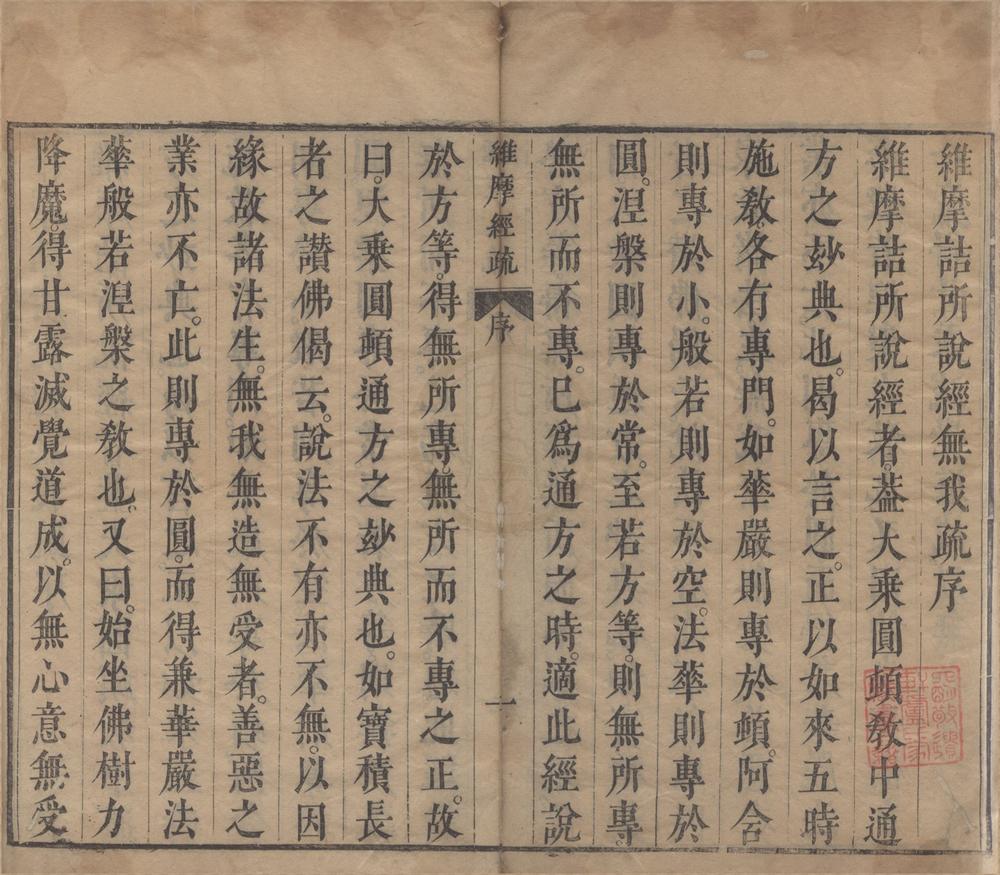 維摩詰所說經無我疏序
維摩詰所說經者。葢大乗圓頓敎中通
方之玅典也。曷以言之。正以如來五時
施敎。各有專門。如華嚴則專於頓。阿含
則專於小。般若則專於空。法華則專於
圓。涅槃則專於常。至若方等。則無所專。
無所而不專。巳爲通方之時。適此經說
維摩經疏 序 一
於方等。得無所專。無所而不專之正。故
曰。大乗圓頓通方之玅典也。如寶積長
者之讃佛偈云。說法不有亦不無。以因
緣故諸法生。無我無造無受者。善惡之
業亦不亡。此則專於圓。而得兼華嚴法
華般若涅槃之敎也。又曰。始坐佛樹力
降魔。得甘露滅覺道成。以無心意無受